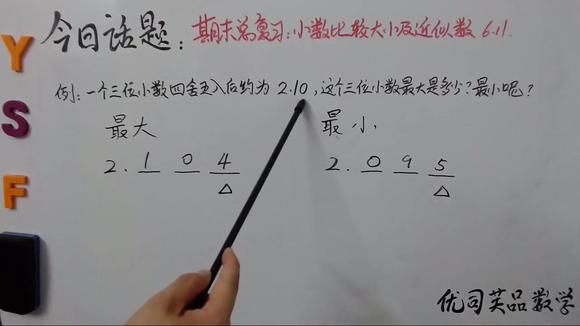 今日话题:期末总复习:小数比较大小及近似数 6.11.
例:一个三位小数四舍五入后约为 2.10,这个三位小数最大是多少?最小呢?
最大
2.104
△
最小
2.095
△
Y
S
F
优司芙品数学